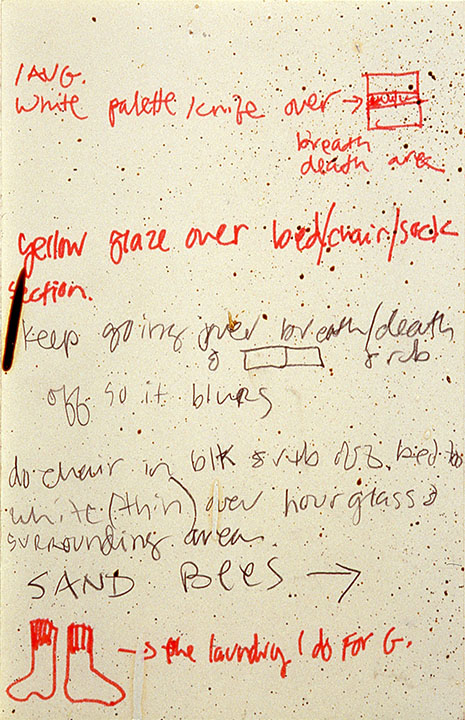 1 AUG.
White palette knife over →
breath
death area
Yellow glaze over bed/chair/sock
section.
keep going over breath/death
& rub
off so it blurs
do chair in blk & rub off. bed too
white (thin) over hourglass &
surrounding area.
SAND BEES →
→ the laundry I do for G.